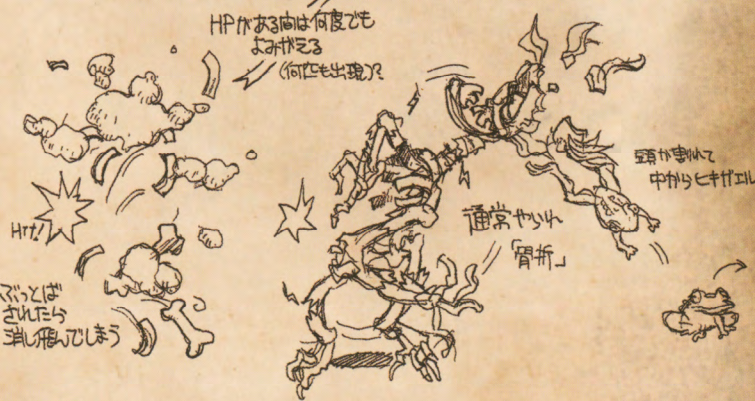 HPがある間は何度でも
よみがえる
(何匹も出現)?
Hit!
ぶっとば
されたら
消し飛んでしまう
通常やられ
「骨折」
頭が割れて
中からヒキガエル